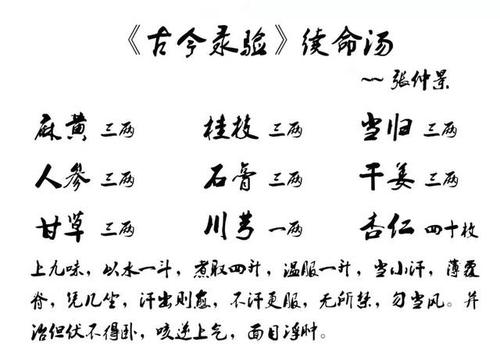 《古今录验》续命汤
~~张仲景
麻黄 三两 桂枝 三两 当归 三两
人参 三两 石膏 三两 干姜 三两
甘草 三两 川芎 一两 杏仁 四十枚
上九味，以水一斗，煮取四升，温服一升，当小汗，薄覆
脊，凭几坐，汗出则愈，不汗更服，无所禁，勿当风。并
治但伏不得卧，咳逆上气，面目浮肿。